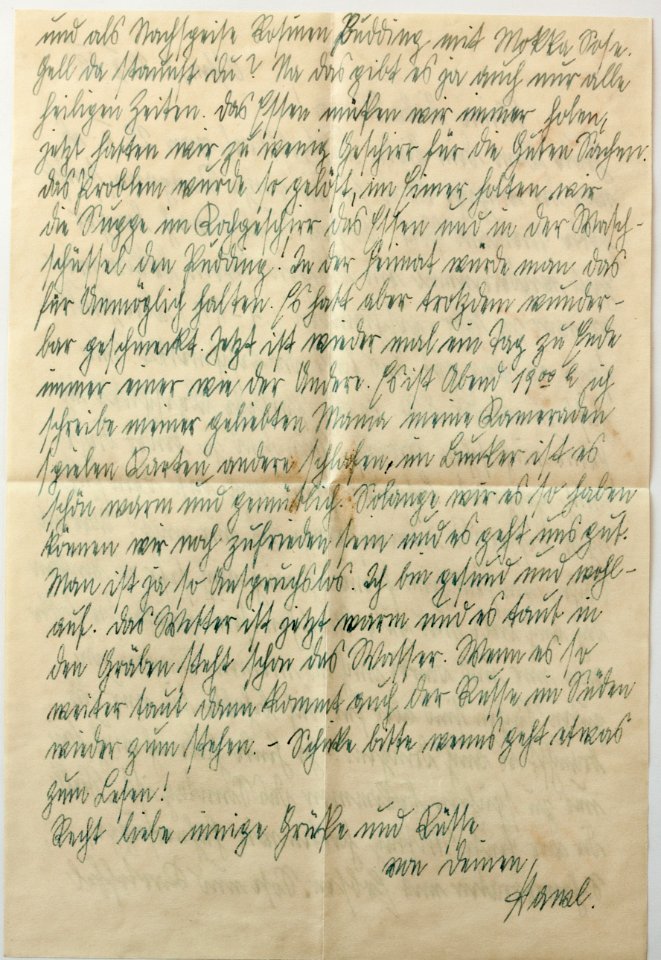 und als Nachspeise Rosinen Pudding mit Mokka Sose.
Gell da staunst du? Na das gibt es ja auch nur alle
heiligen Zeiten. Das Essen müssen wir immer holen,
jetzt hatten wir zu wenig Geschirr für die Guten Sachen.
Das Problem wurde so gelöst, im Eimer holten wir
die Suppe im Kochgeschirr das Essen und in der Wasch-
schüssel den Pudding! In der Heimat würde man das
für Unmöglich halten. Es hatt aber trotzdem wunder-
bar geschmeckt. Jetzt ist wieder mal ein Tag zu Ende
immer einer wie der Andere. Es ist Abend 19⁰⁰ h ich
schreibe meiner geliebten Mama meine Kameraden
spielen Karten andere schlafen, im Bunker ist es
schön warm und gemütlich. Solange wir es so haben
können wir noch zufrieden sein und es geht uns gut.
Man ist ja so Anspruchslos. Ich bin gesund und wohl-
auf. Das Wetter ist jetzt warm und es taut in
den Gräben steht schon das Wasser. Wenn es so
weiter taut dann kommt auch der Russe im Süden
wieder zum stehen. – Schicke bitte wenns geht etwas
zum Lesen!
Recht liebe innige Grüße und Küsse
von deinen,